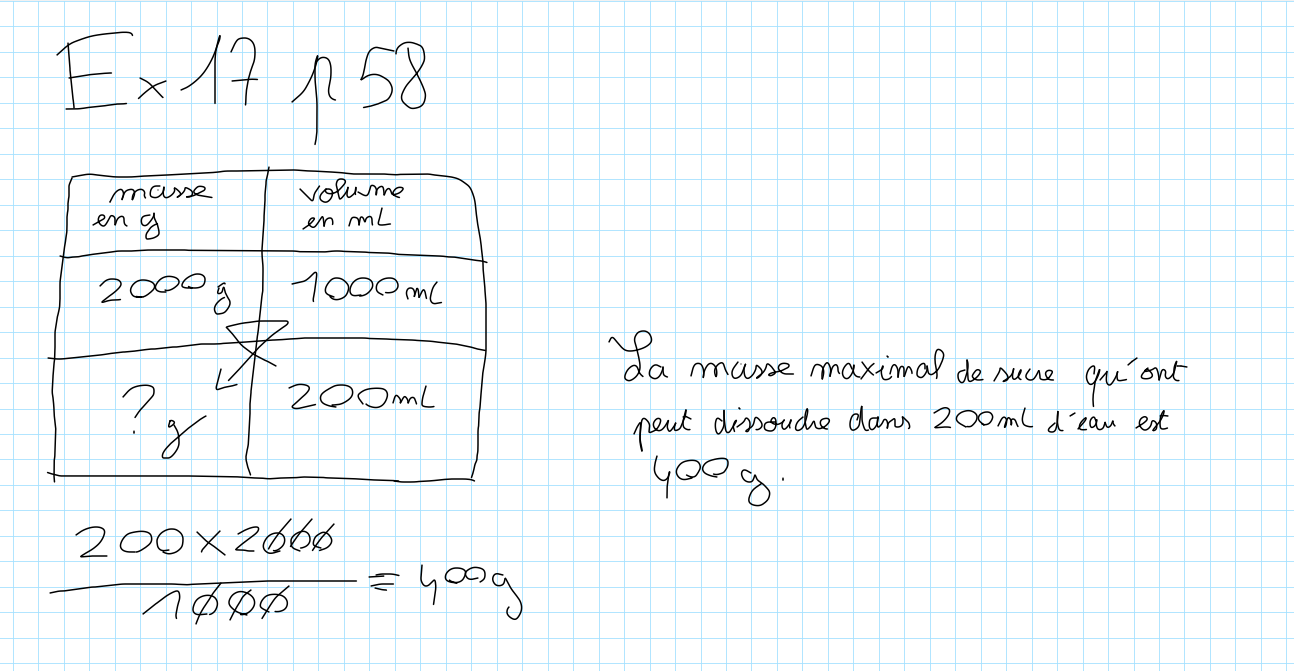 Ex 17 p 58
masse
en g
volume
en mL
2000 g
1000 mL
? g
200 mL
200 x 2000
1000
= 400 g
La masse maximal de sucre qu'ont
peut dissoudre dans 200 mL d'eau est
400 g.